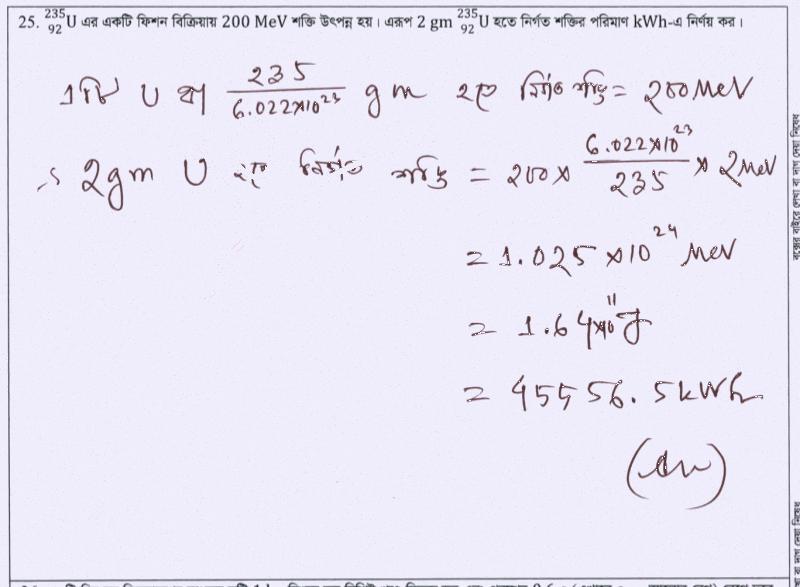 25. ²³⁵₉₂U এর একটি ফিশন বিক্রিয়ায় 200 MeV শক্তি উৎপন্ন হয়। এরূপ 2 gm ²³⁵₉₂U হতে নির্গত শক্তির পরিমাণ kWh-এ নির্ণয় কর।
একটি U বা 235/6.022×10²³ gm হতে নির্গত শক্তি = 200 MeV
∴ 2gm U হতে নির্গত শক্তি = 200 × 6.022×10²³/235 × 2 MeV
= 1.025 × 10²⁴ MeV
= 1.64×10¹¹ J
= 45556.5 kWh
(Ans)
বক্সের বাইরে লেখা বা দাগ দেয়া নিষেধ
বা দাগ দেয়া নিষেধ